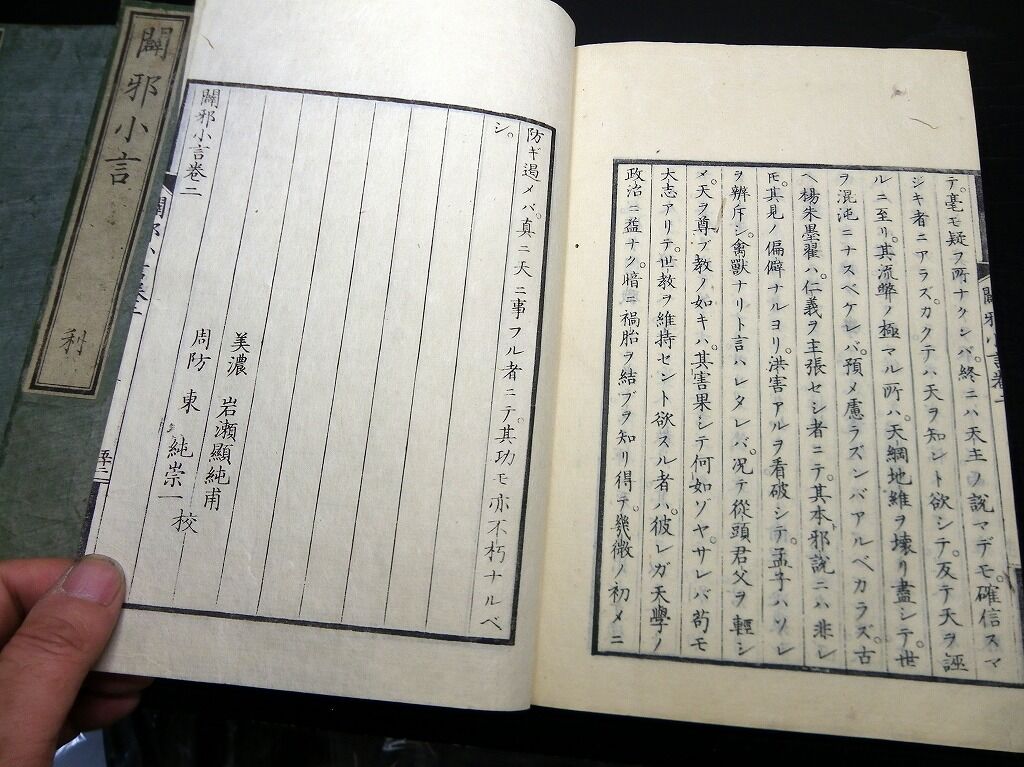 闢邪小言
利
テ。毫モ疑フ所ナクンバ。終ニハ天主ノ説マデモ。確信スマ
ジキ者ニアラズ。カクテハ天ヲ知ント欲シテ。反テ天ヲ誣
ルニ至リ。其流弊ノ極マル所ハ。天綱地維ヲ壊リ盡シテ。世
ヲ混沌ニナスベケレバ。預メ慮ラズンバアルベカラズ。古
ヘ楊朱墨翟ハ。仁義ヲ主張セシ者ニテ。其本邪説ニハ非レ
𪜈。其見ノ偏僻ナルヨリ。洪害アルヲ看破シテ。孟子ハソレ
ヲ辨斥シ。禽獸ナリト言ハレタレバ。况テ從頭君父ヲ輕シ
メ。天ヲ尊ブ教ノ如キハ。其害果シテ何如ゾヤ。サレバ苟モ
大志アリテ。世教ヲ維持セント欲スル者ハ。彼レガ天學ノ
政治ニ益ナク。暗ニ禍胎ヲ結ブヲ知リ得テ。幾微ノ初メニ
闢邪小言卷二
防ギ遏メバ。真ニ天ニ事フル者ニテ。其功モ亦不朽ナルベ
シ。
美濃 岩瀬顯純甫
周防 東 純崇一 校
闢邪小言卷二
闢邪小言卷二
五十二